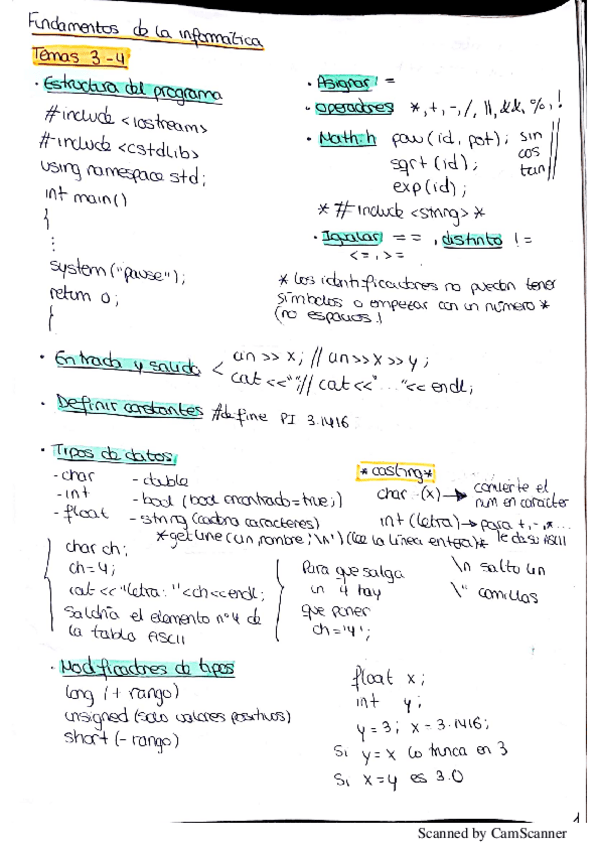 Fundamentos de la informática
Temas 3-4
· Estructura del programa
#include <iostream>
#include <cstdlib>
using namespace std;
int main()
{
⋮
system("pause");
return 0;
}
· Asignar! =
· operadores *,+,-,/,||,&&,%,!
· Math.h pow(id, pot); sin
cos
tan
sqrt(id);
exp(id);
* #include <string> *
· Igualar == , distinto !=
<=, >=
* Los identificadores no pueden tener
símbolos o empezar con un número *
(no espacios!
· Entrada y salida < cin >> x; // cin >> x >> y;
cout <<""; // cout <<"..."<< endl;
· Definir constantes #define PI 3.1416
· Tipos de datos
- char
- int
- float
- double
- bool (bool encontrado=true;)
- string (cadena caracteres)
*getline(cin,nombre,'\n') (lee la línea entera)*
*casting*
char (x) → convierte el
num en carácter
int (letra) → para +,-,*...
le da su ASCII
char ch;
ch=4;
cout<<"letra: "<<ch<<endl;
Saldría el elemento nº4 de
la tabla ASCII
Para que salga
un 4 hay
que poner
ch='4';
\n salto lin
\" comillas
· Modificadores de tipos
long (+ rango)
unsigned (solo valores positivos)
short (- rango)
float x;
int y;
y=3; x=3.1416;
Si y=x lo trunca en 3
Si x=y es 3.0
1
Scanned by CamScanner